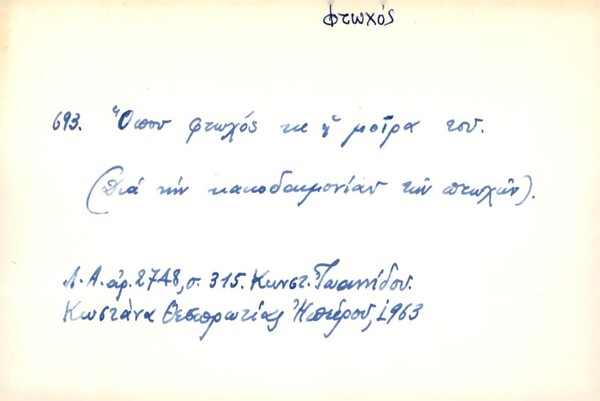 φτωχός
693. Ὅπου φτωχός κε ἡ μοῖρα του.
(Διά τήν κακοδαιμονίαν τῶν πτωχῶν).
Λ.Α. ἀρ. 2748, σ. 315. Κωνστ. Ἰωαννίδου.
Κωστάνα Θεσπρωτίας Ἠπείρου, 1963